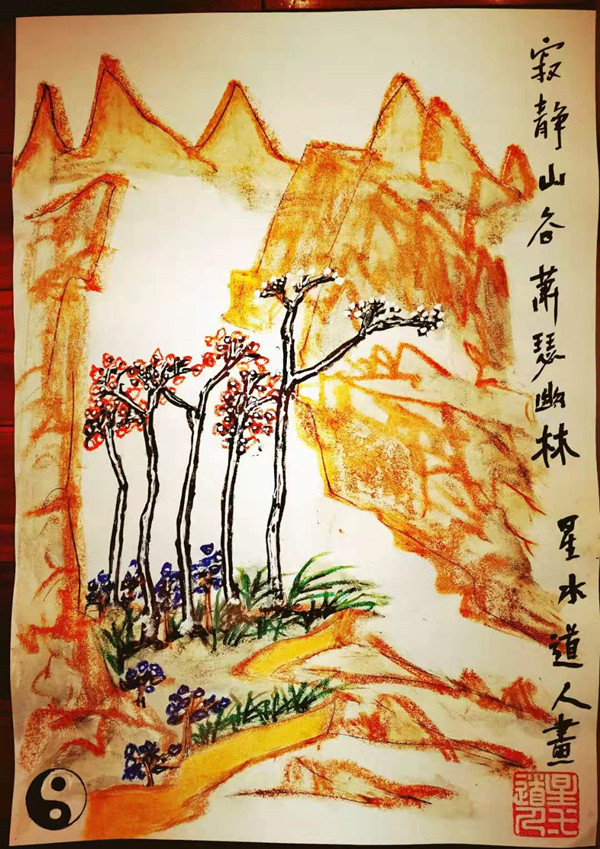 寂静山谷萧瑟幽林
星水道人畫
星水道人